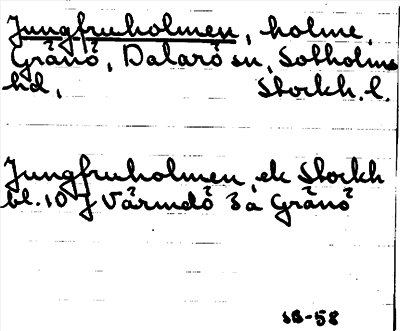 Jungfruholmen, holme,
Gränö, Dalarö sn, Sotholms
hd, Stockh. l.
Jungfruholmen, ek Stockh
bl. 10 f Värmdö 3 a Gränö
SB-58